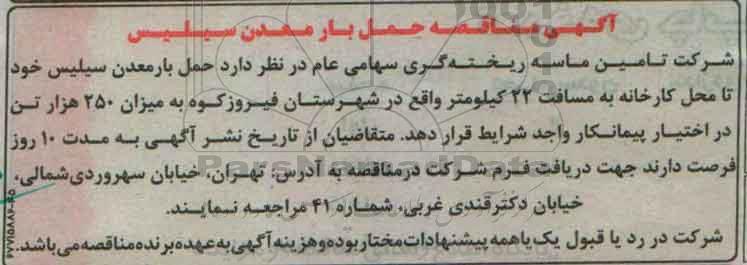 آگهی مناقصه حمل بار معدن سیلیس
شرکت تامین ماسه ریخته‌گری سهامی عام در نظر دارد حمل بارمعدن سیلیس خود
تا محل کارخانه به مسافت ۲۲ کیلومتر واقع در شهرستان فیروزکوه به میزان ۲۵۰ هزار تن
در اختیار پیمانکار واجد شرایط قرار دهد. متقاضیان از تاریخ نشر آگهی به مدت ۱۰ روز
فرصت دارند جهت دریافت فرم شرکت درمناقصه به آدرس: تهران، خیابان سهروردی‌شمالی،
خیابان دکترقندی غربی، شماره ۴۱ مراجعه نمایند.
شرکت در رد یا قبول یک‌یاهمه پیشنهادات‌مختاربوده‌وهزینه‌آگهی‌به‌عهده‌برنده‌مناقصه‌می‌باشد.
ParsNamadData